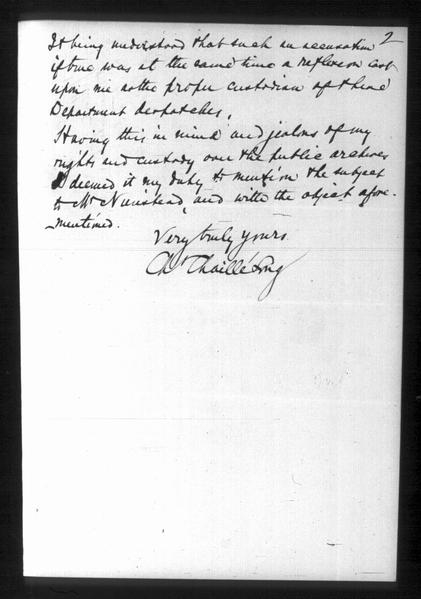 2
It being understood that such an accusation
if true was at the same time a reflexion cast
upon me as the proper custodian of these
Department despatches.
Having this in mind and jealous of my
rights and custody over the public archives
I deemed it my duty to mention the subject
to Mr Nunstead, and with the object afore-
mentioned.
Very truly yours
Ch. Chaillé Long